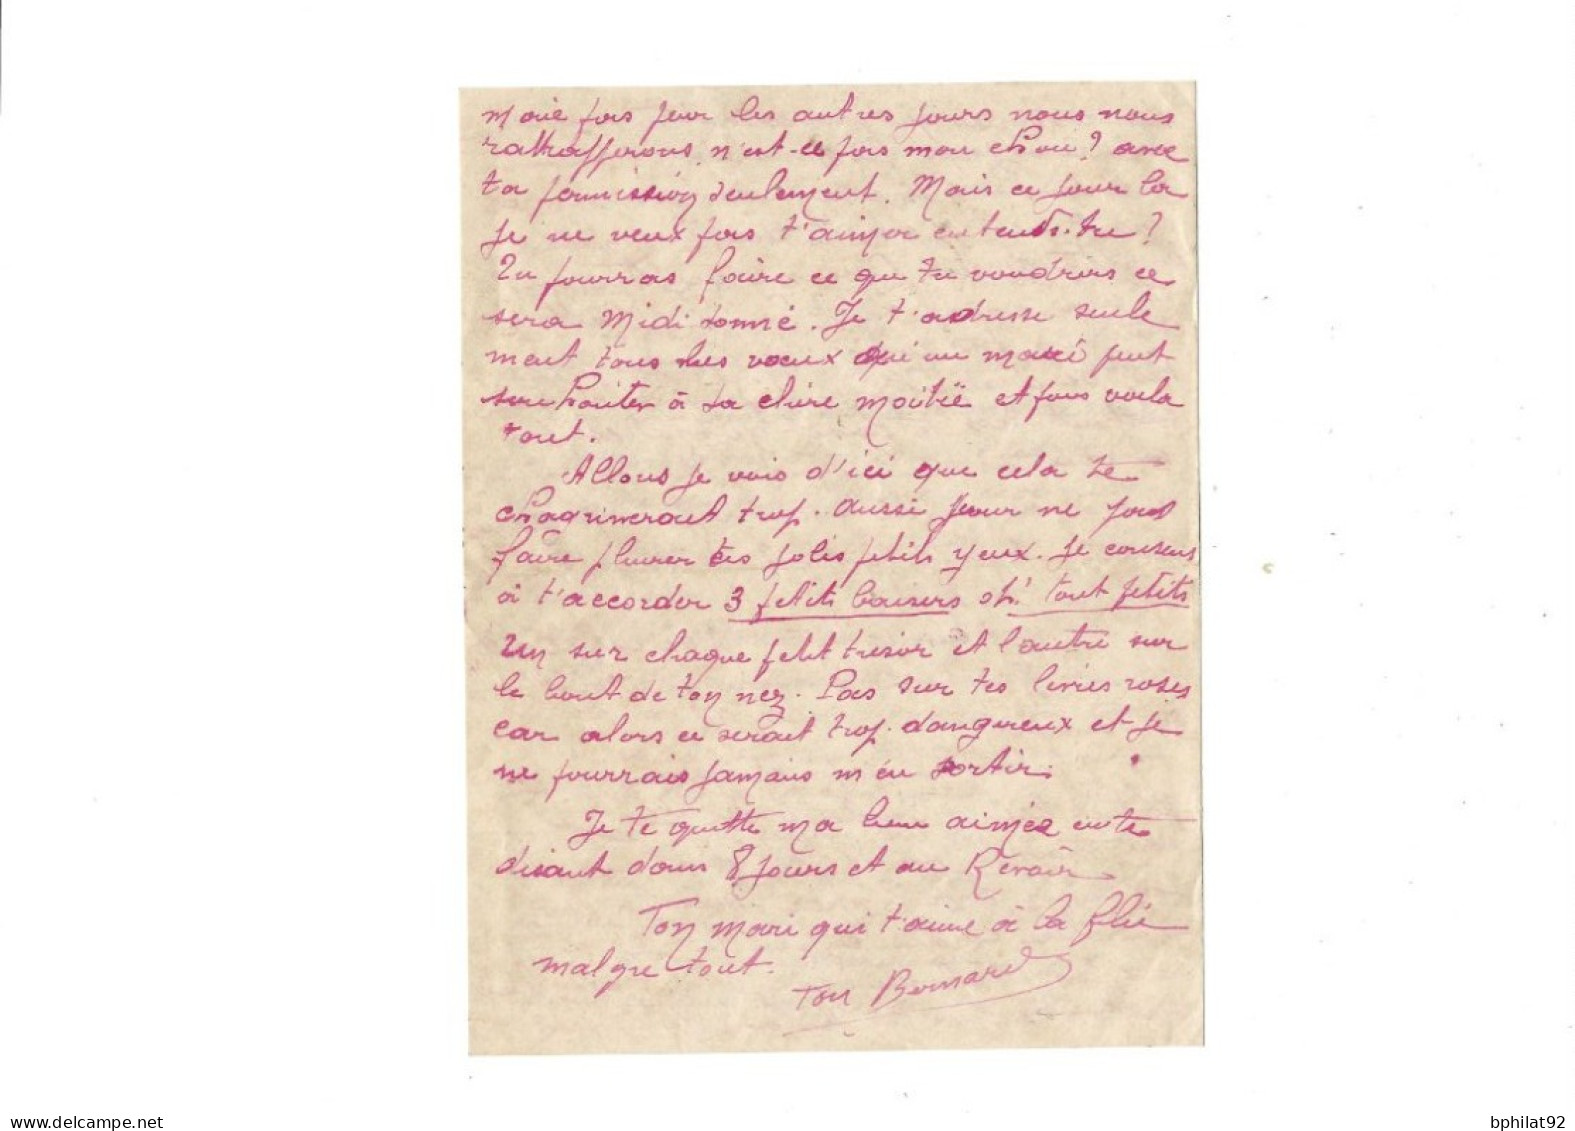 fois pour les autres jours nous nous
rattrapperons, n'est-ce pas mon chou? avec
ta permission seulement. Mais ce jour la
je ne veux pas t'aimer entends-tu?
Tu pourras faire ce que tu voudras ce
sera Midi sonné. Je t'adresse seule
ment tous les voeux qu'un mari peut
souhaiter à sa chère moitié et puis voila
tout.
Allons je vois d'ici que cela te
chagrinerait trop. Aussi pour ne pas
faire pleurer tes jolis petits yeux. Je consens
à t'accorder 3 petits baisers oh! tout petits
Un sur chaque petit tresor et l'autre sur
le bout de ton nez. Pas sur tes levres roses
car alors ce serait trop dangereux et je
ne pourrais jamais m'en sortir.
Je te quitte ma bien aimée en te
disant dans 8 jours et au Revoir
Ton mari qui t'aime à la folie
malgre tout.
Ton Bernard
delcampe.net
bphilat92